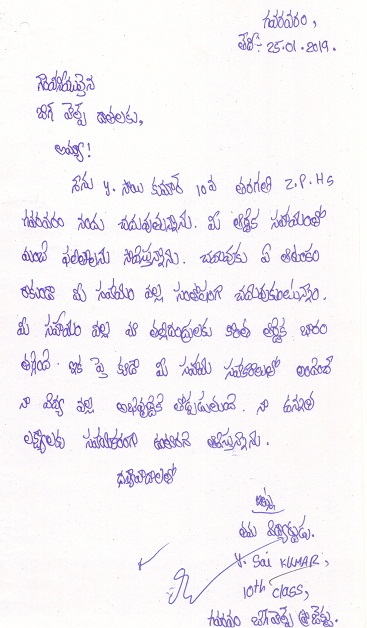 గవరవరం,
తేది:- 25.01.2019.
గౌరవనీయులైన
బిగ్ హెల్ప్ దాతలకు,
అయ్యా!
నేను Y. సాయి కుమార్ 10వ తరగతి Z.P.HS
గవరవరం నందు చదువుతున్నాను. మీ ఆర్థిక సహాయంతో
మంచి ఫలితాలను సాధిస్తున్నాను. చదువుకు ఏ ఆటంకం
రాకుండా మీ సహాయం వల్ల సంతోషంగా చదువుకుంటున్నాం.
మీ సహాయం వల్ల మా తల్లిదండ్రులకు కొంత ఆర్థిక భారం
తగ్గింది. ఇక పై కూడా మీ సహాయ సహకారాలుతో అందించి
నా విద్య వల్ల అభివృద్ధికి తోడ్పడుతుంది. నా ఉన్నత
లక్ష్యాలకు సహాయకరంగా ఉంటారని ఆశిస్తున్నాను.
ధన్యవాదాలతో
ఇట్లు
తమ విద్యార్థుడు.
Y. Sai KUMAR,
10th class,
గవరవరం బిగ్ హెల్ప్ ప్రాజెక్టు.